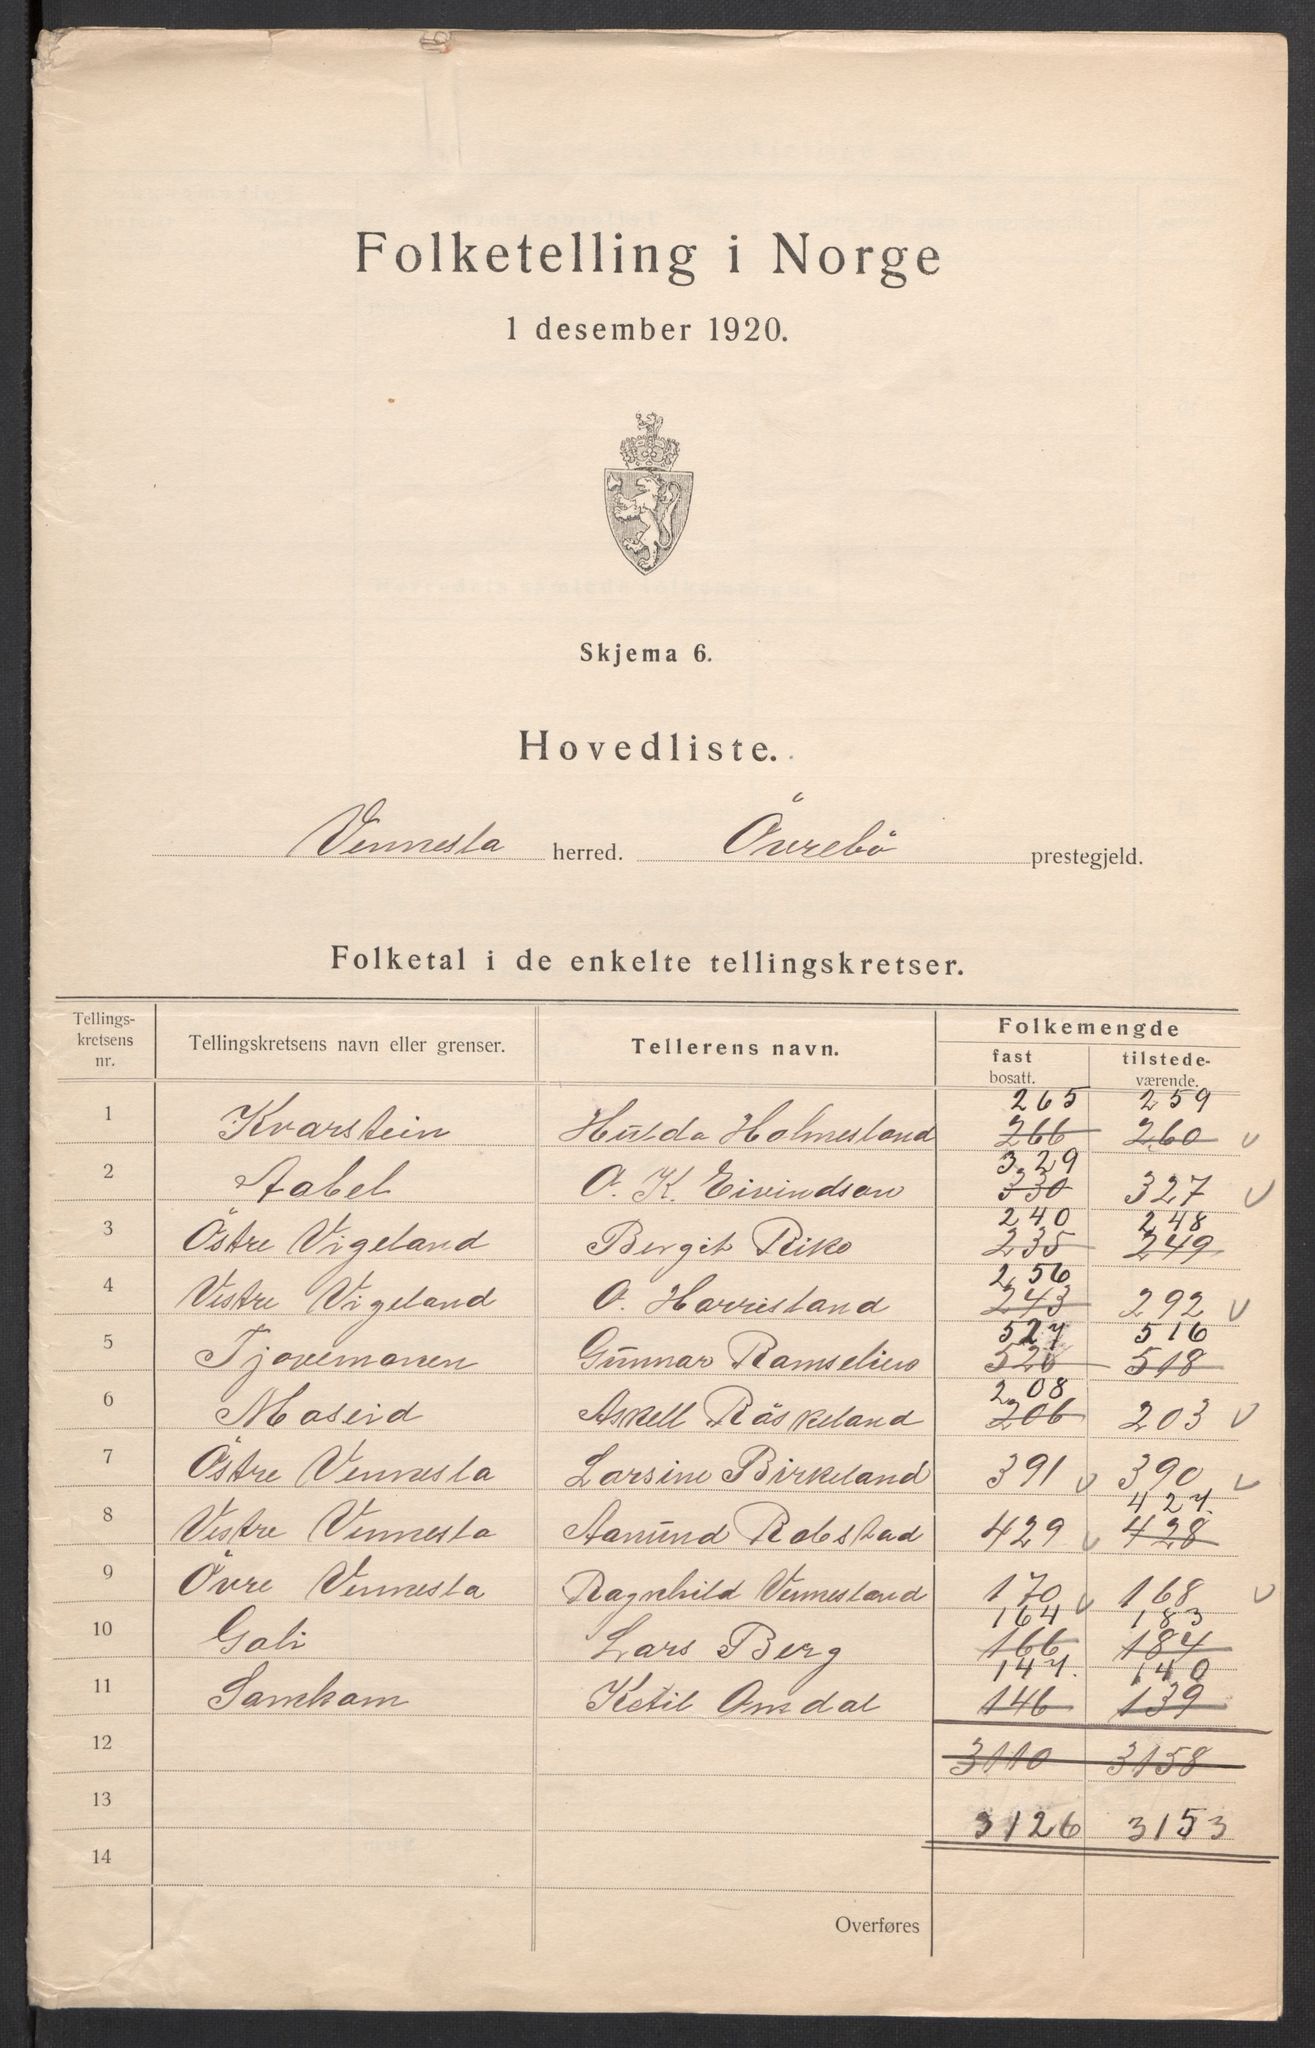 Folketelling i Norge
1 desember 1920.
Skjema 6.
Hovedliste.
Vennesla herred. Övrebö prestegjeld.
Folketal i de enkelte tellingskretser.
Tellings-kretsens nr. Tellingskretsens navn eller grenser. Tellerens navn. Folkemengde
fast bosatt. tilstede-værende.
265 259
1 Kvarstein Hulda Holmesland 266 260 v
329
2 Aabel O. K. Eivindson 330 327 v
240 248
3 Östre Vigeland Bergit Riko 235 249
256
4 Vestre Vigeland O. Harrisland 243 292 v
527 516
5 Tjovemonen Gunnar Ramselius 528 518
208
6 Moseid Askell Röskeland 206 203 v
7 Östre Vennesla Larsine Birkeland 391 v 390 v
427.
8 Vestre Vennesla Aanund Robstad 429 v 428
9 Övre Vennesla Ragnhild Vennesland 170 v 168 v
164 183
10 Gali Lars Berg 166 184
147. 140
11 Samkom Ketil Omdal 146 139
12 3110 3158
13 3126 3153
14
Overføres